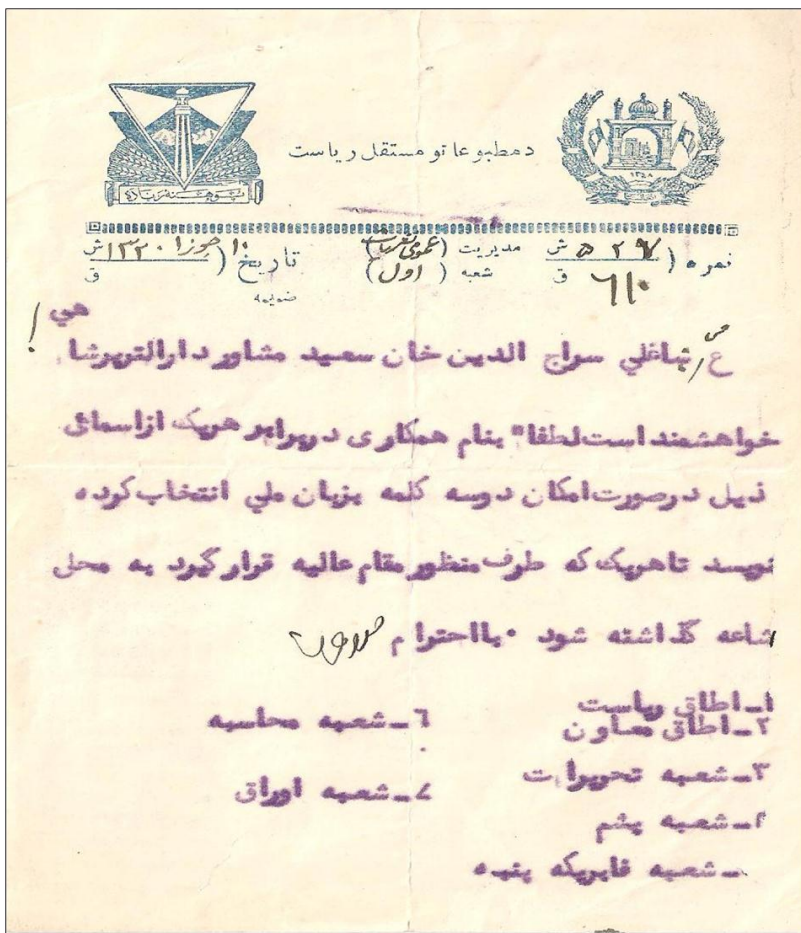 د مطبوعاتو مستقل ریاست
۱۳۴۸
نمره ( ۵۲۷ ش ق ۶۱۰
مدیریت ( عمومی نشریات )
شعبه ( اول )
تاریخ ( ۱۰ جوزا ۱۳۲۰ ش ق
ضمیمه
ښاغلي سراج الدین خان سعید مشاور دارالتربرشاهي !
خواهشمند است لطفا" بنام همکاری در برابر هریک از اسمائی
ذیل در صورت امکان دوسه کلمه بزبان ملي انتخاب کرده
نویسد تا هریک که طرف منظور مقام عالیه قرار گیرد به محل
شاعه گذاشته شود . با احترام
۱ـ اطاق ریاست
۲ـ اطاق معاون
۳ـ شعبه تحریرات
ـ شعبه پشم
ـ شعبه فابریکه پنبه
٦ـ شعبه محاسبه
۷ـ شعبه اوراق